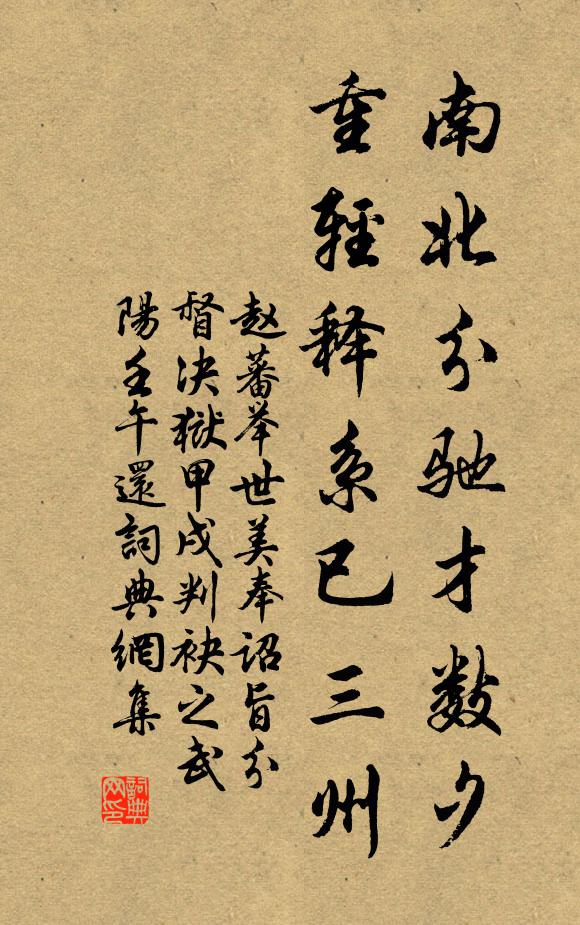 南北分馳才数夕
重輕释系已三州
赵蕃举世美奉詔旨分
督决獄甲戌判袂之武
陽壬午還詞典網集
詞典网印